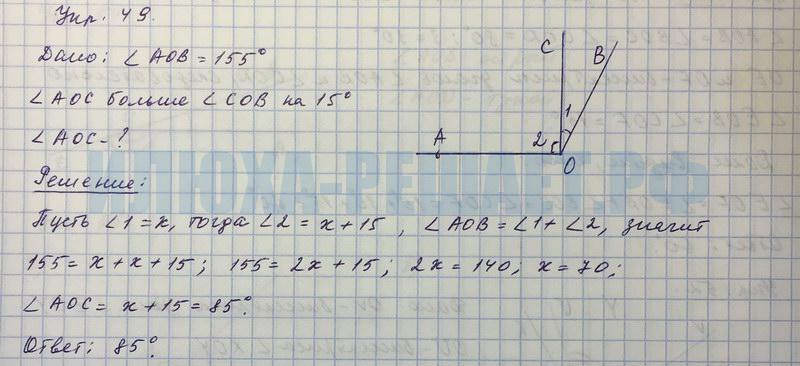 Упр. 49.
Дано: ∠AOB = 155°
∠AOC больше ∠COB на 15°
∠AOC - ?
C
B
1
A
2
O
ИЛЮХА-РЕШАЕТ.РФ
Решение:
Пусть ∠1 = x, тогда ∠2 = x + 15, ∠AOB = ∠1 + ∠2, значит
155 = x + x + 15; 155 = 2x + 15; 2x = 140; x = 70;
∠AOC = x + 15 = 85°.
Ответ: 85°.